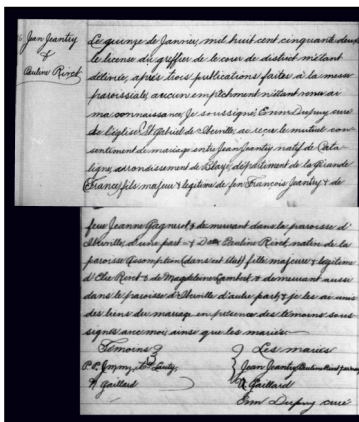 Jean Jeantry
&
Pauline Rivet
Le quinze de Janvier, mil huit cent cinquante deux
le license du griffier de la cour de district m'étant
délivrée, après trois publications faites à la messe
paroissiale, aucun empêchment n'étant venu à
ma connaissance, Je soussigné Enn Dupuy, curé
de l'église St Gabriel de Iberville, ai reçu le mutuel con-
sentiment de mariage entre Jean Jeantry natif de
ligne, arrondissement de Blaye, département de la Gironde
France, fils majeur & légitime de feu François Jeantry & de
feue Jeanne & demeurant dans la paroisse d'
Iberville, d'une part & Pauline Rivet, native de la
paroisse Assomption dans cet état fille majeure & légitime
d'Elie Rivet & de Magdeleine Lambert & demeurant aussi
dans la paroisse d'Iberville d'autre part, & je les ai unis
des liens du mariage en présence des témoins sous-
signés avec moi, ainsi que les mariés.
Témoins Les mariés
P. P. Jean Jeantry Pauline Rivet
N Gaillard Gaillard
Enn Dupuy curé